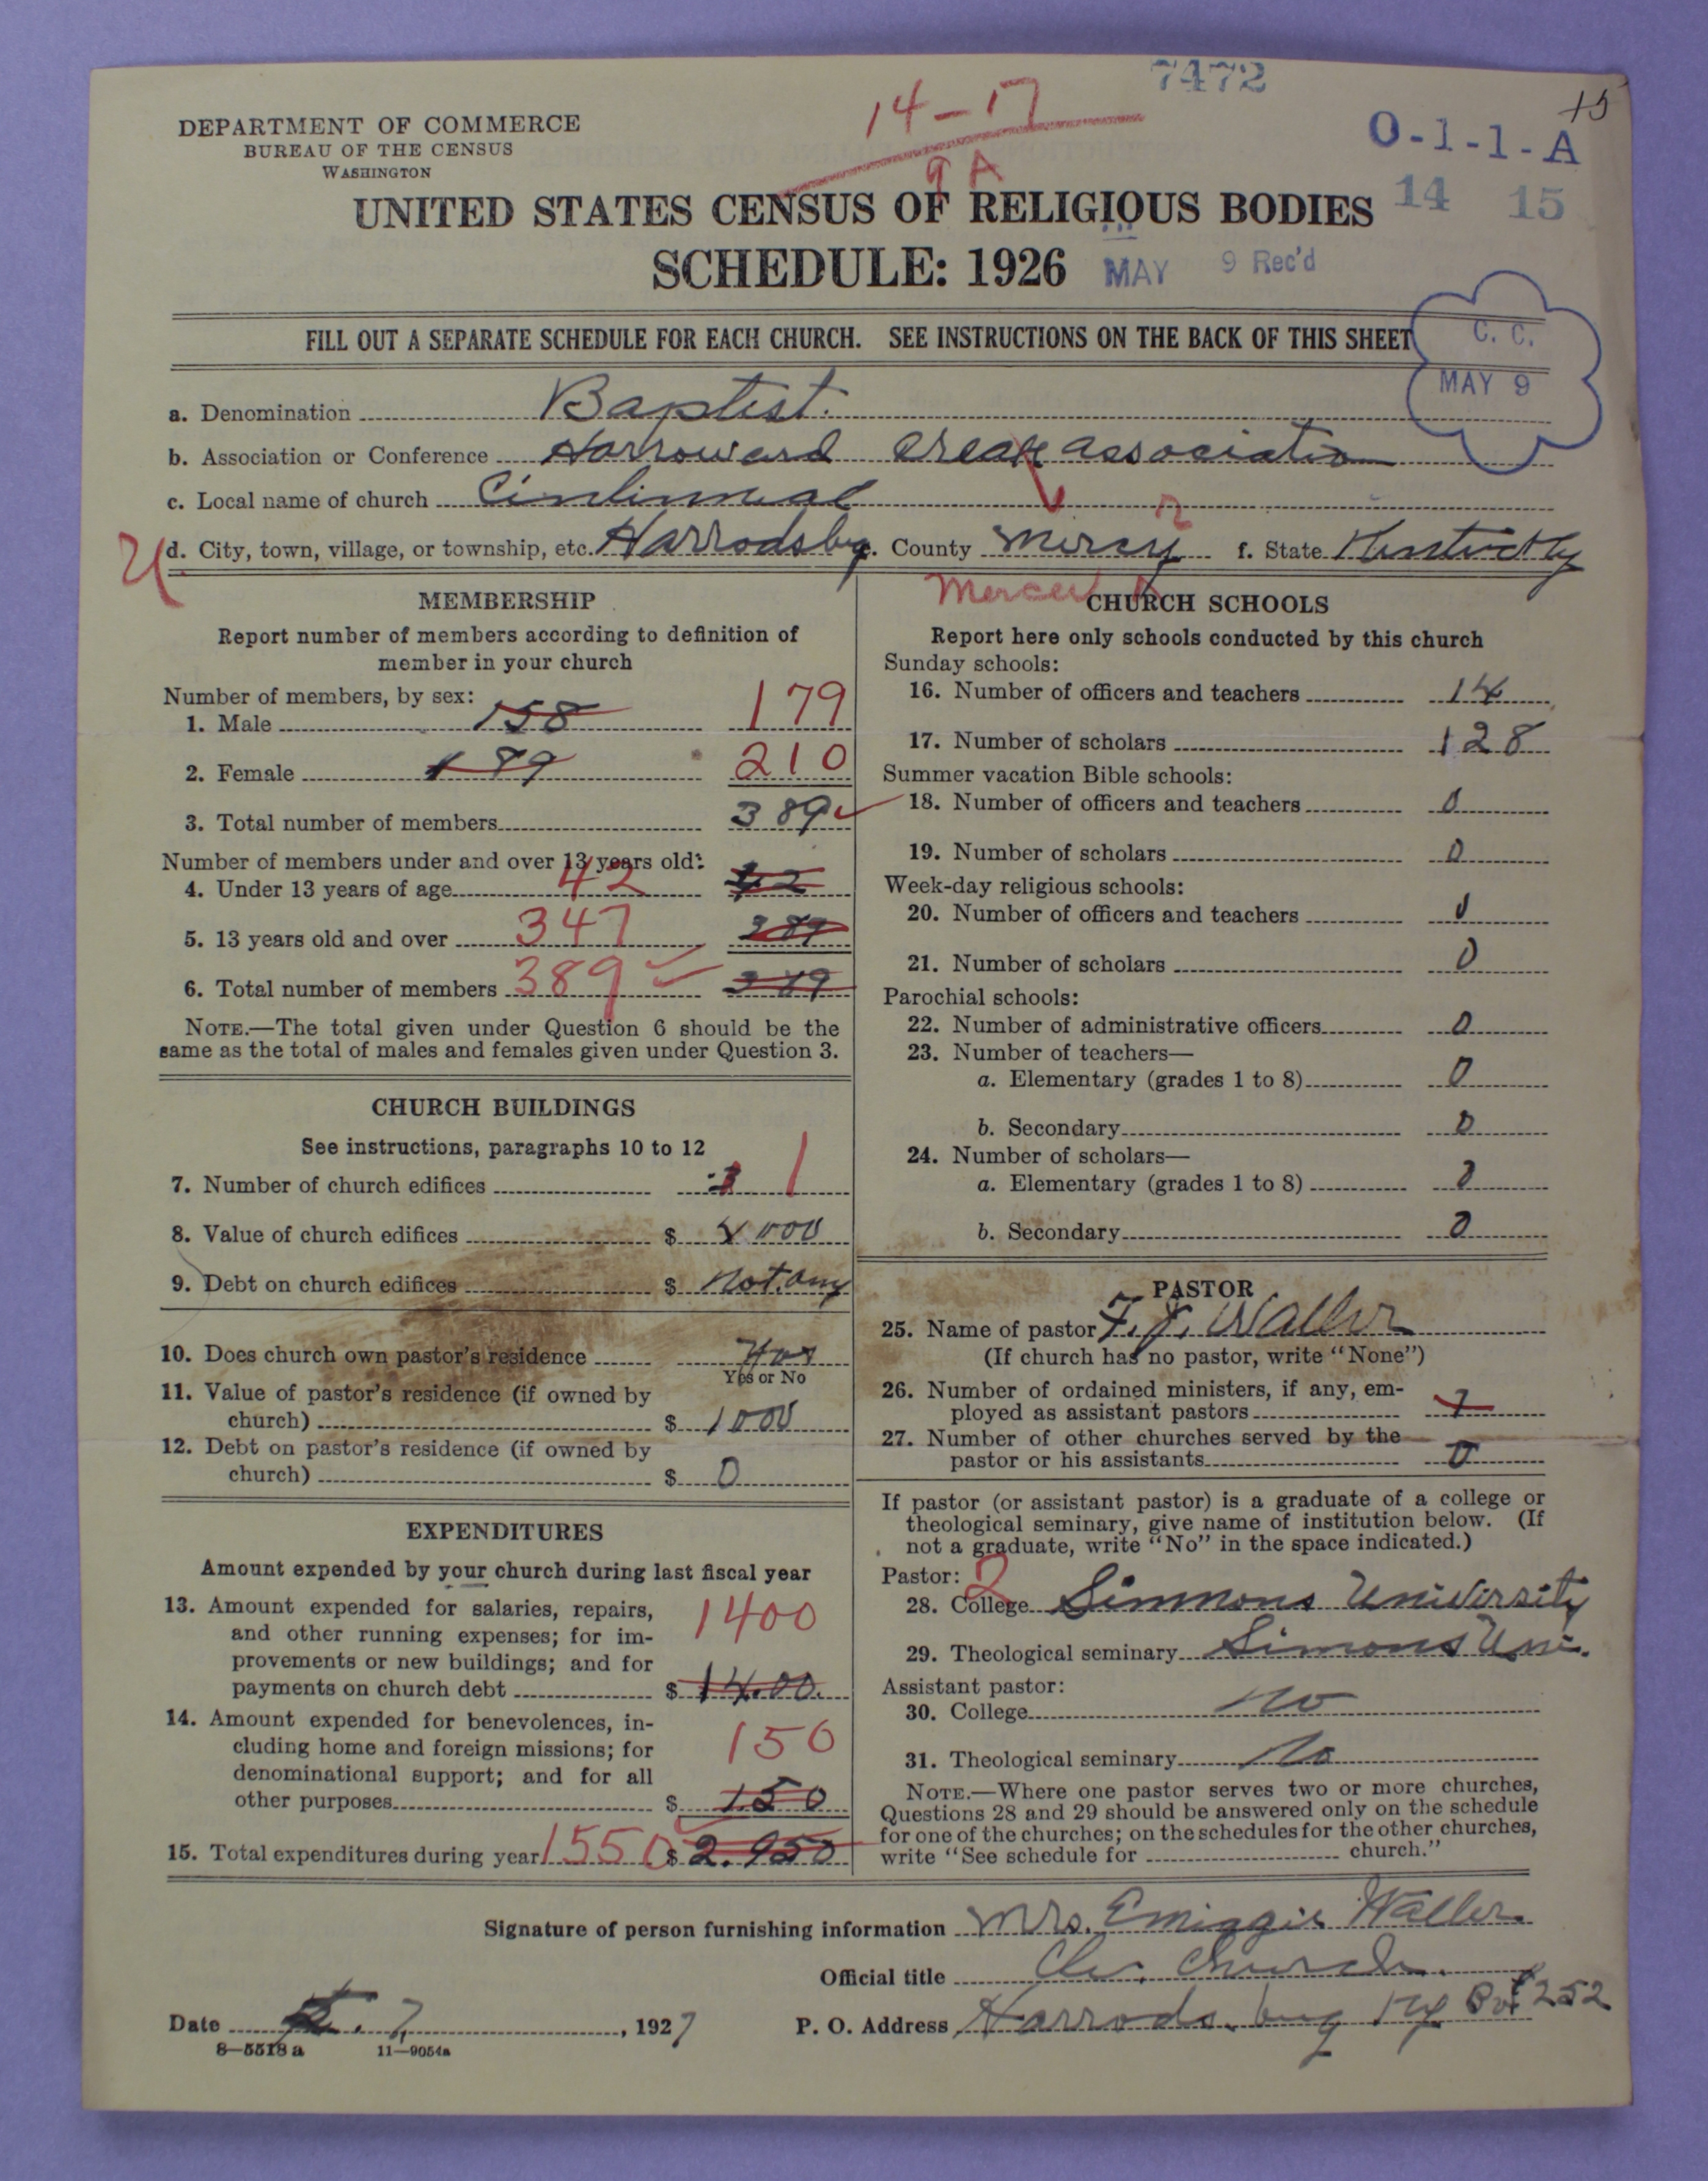 7472
14-17
15
DEPARTMENT OF COMMERCE
BUREAU OF THE CENSUS
WASHINGTON
O-1-1-A
9 A
14 15
UNITED STATES CENSUS OF RELIGIOUS BODIES
SCHEDULE: 1926
MAY 9 Rec'd
FILL OUT A SEPARATE SCHEDULE FOR EACH CHURCH. SEE INSTRUCTIONS ON THE BACK OF THIS SHEET
C. C.
MAY 9
a. Denomination Baptist.
b. Association or Conference Creak association
c. Local name of church
d. City, town, village, or township, etc. Harrodsbug. County Mercy r f. State Kentucky
U
Mercer
MEMBERSHIP
Report number of members according to definition of
member in your church
Number of members, by sex:
1. Male 158 179
2. Female 189 210
3. Total number of members 389
Number of members under and over 13 years old:
4. Under 13 years of age 42 42
5. 13 years old and over 347 389
6. Total number of members 389 389
NOTE.—The total given under Question 6 should be the
same as the total of males and females given under Question 3.
CHURCH BUILDINGS
See instructions, paragraphs 10 to 12
7. Number of church edifices 1
8. Value of church edifices $ 4000
9. Debt on church edifices $ not.any
10. Does church own pastor's residence Yes
Yes or No
11. Value of pastor's residence (if owned by
church) $ 1000
12. Debt on pastor's residence (if owned by
church) $ 0
EXPENDITURES
Amount expended by your church during last fiscal year
13. Amount expended for salaries, repairs,
and other running expenses; for im-
provements or new buildings; and for
payments on church debt $ 14.00.
1400
14. Amount expended for benevolences, in-
cluding home and foreign missions; for
denominational support; and for all
other purposes $ 150
150
15. Total expenditures during year 1550 $ 2.950
CHURCH SCHOOLS
Report here only schools conducted by this church
Sunday schools:
16. Number of officers and teachers 14
17. Number of scholars 128
Summer vacation Bible schools:
18. Number of officers and teachers 0
19. Number of scholars 0
Week-day religious schools:
20. Number of officers and teachers 0
21. Number of scholars 0
Parochial schools:
22. Number of administrative officers 0
23. Number of teachers—
a. Elementary (grades 1 to 8) 0
b. Secondary 0
24. Number of scholars—
a. Elementary (grades 1 to 8) 0
b. Secondary 0
PASTOR
25. Name of pastor F. J. Waller
(If church has no pastor, write "None")
26. Number of ordained ministers, if any, em-
ployed as assistant pastors
27. Number of other churches served by the
pastor or his assistants 0
If pastor (or assistant pastor) is a graduate of a college or
theological seminary, give name of institution below. (If
not a graduate, write "No" in the space indicated.)
Pastor: 2
28. College Simmons University
29. Theological seminary Simons Uni.
Assistant pastor:
30. College no
31. Theological seminary No
NOTE.—Where one pastor serves two or more churches,
Questions 28 and 29 should be answered only on the schedule
for one of the churches; on the schedules for the other churches,
write "See schedule for church."
Signature of person furnishing information Mrs. Waller.
Official title Church.
Date 7, 1927
P. O. Address Harrods.bug Ky Box 252
8—5518 a 11—9054a